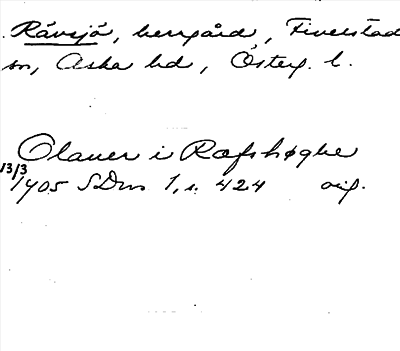 Rävsjö, herrgård, Fivelstad
sn, Aska hd, Österg. l.
Olauer i Ræfshøghe
13/3
1405 SDns 1, s. 424 orig.